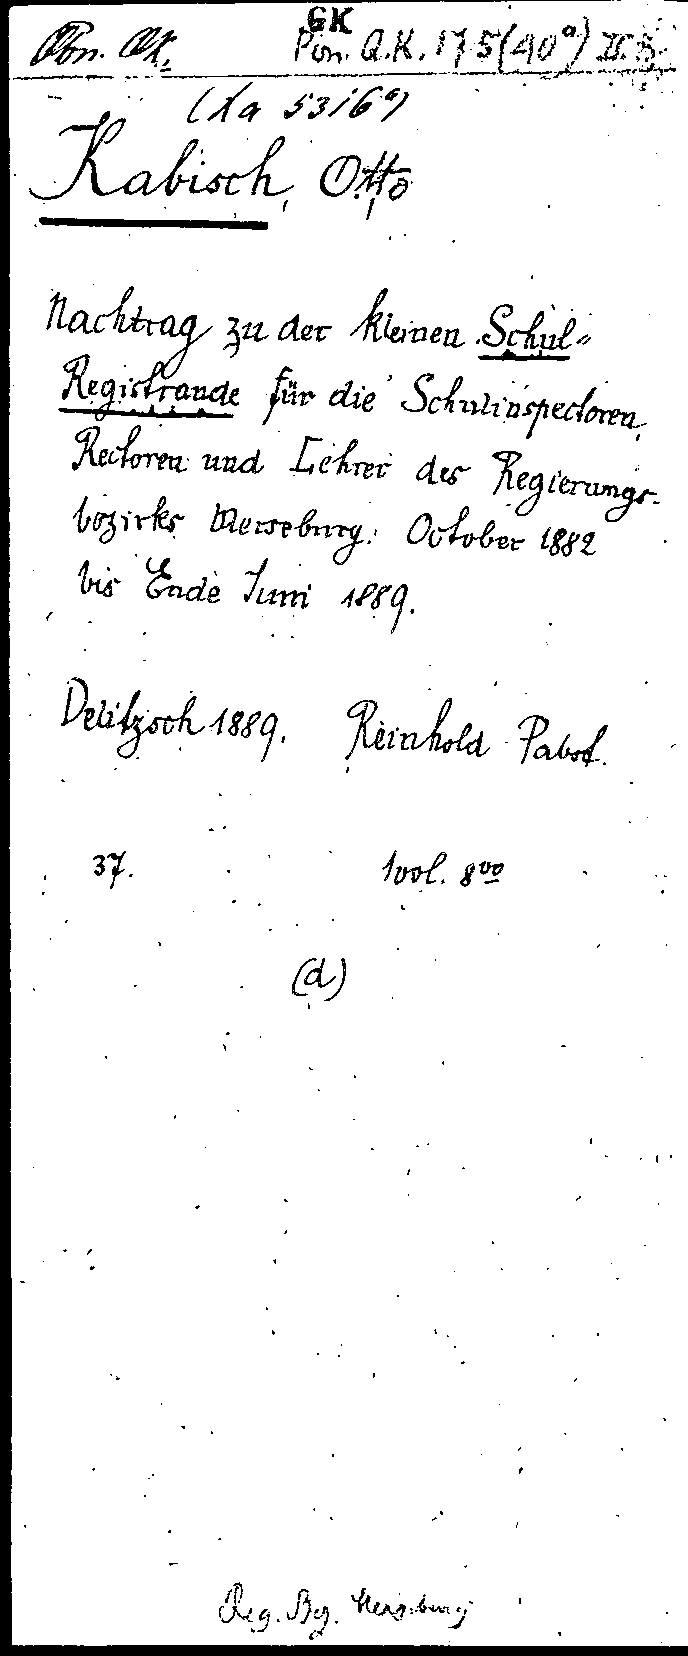 GK
Pon. Qk. Pon. Q.K. 175(40ᵃ) II.
(Xa 5316ᵃ)
Kabisch, Otto
Nachtrag zu der kleinen Schul-
Registrande für die Schulinspectoren,
Rectoren und Lehrer des Regierungs-
bezirks Merseburg. October 1882
bis Ende Juni 1889.
Delitzsch 1889. Reinhold Pabst.
37. 1 vol. 8ᵛᵒ
(d)
Reg. Bez. Merseburg